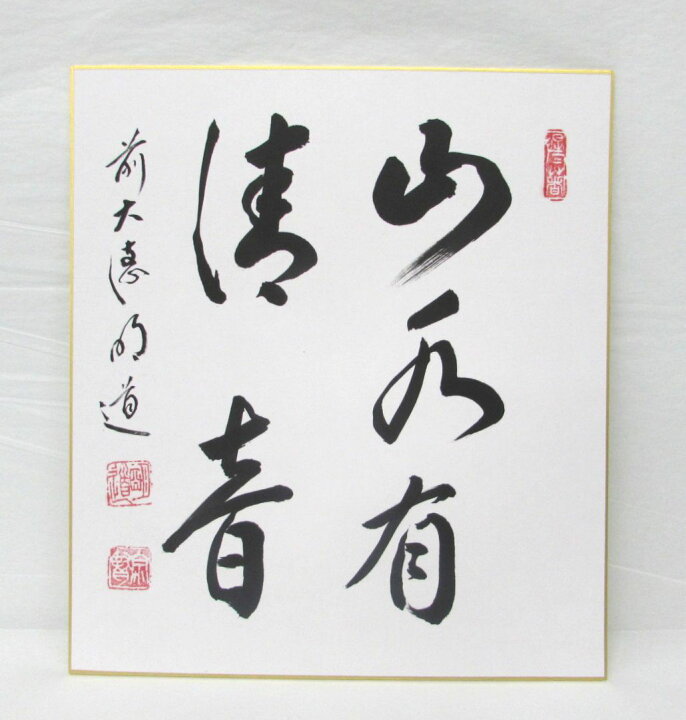 山水有
清音
前大徳明道